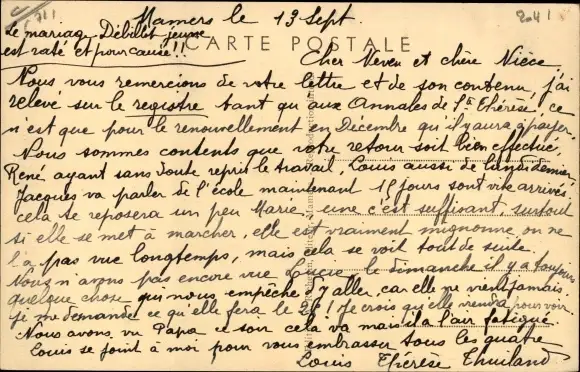 Mamers le 13 Sept.
Le mariage Débillot jeune
est raté et pour cause !!
CARTE POSTALE
Cher Neveu et chère Nièce
Nous vous remercions de votre lettre et de son contenu, j'ai
relevé sur le registre tant qu'aux Annales de Ste Thérèse, ce
n'est que pour le renouvellement en Décembre qu'il y aura à payer.
Nous sommes contents que votre retour soit bien effectué,
René ayant sans doute repris le travail, Louis aussi de lundi dernier
Jacques va parler de l'école maintenant 15 jours sont vite arrivés,
cela te reposera un peu Marie, une c'est suffisant, surtout
si elle se met à marcher, elle est vraiment mignonne, on ne
l'a pas vue longtemps, mais cela se voit tout de suite.
Nous n'avons pas encore vue Lucie, le dimanche il y a toujours
quelque chose qui nous empêche d'y aller, car elle ne vient jamais.
je me demande ce qu'elle fera le 26 ! Je crois qu'elle viendra pour voir
Nous avons vu Papa ce soir cela va mais il a l'air fatigué.
Louis se joint à moi pour vous embrasser tous les quatre
Louis Thérèse Thuiland